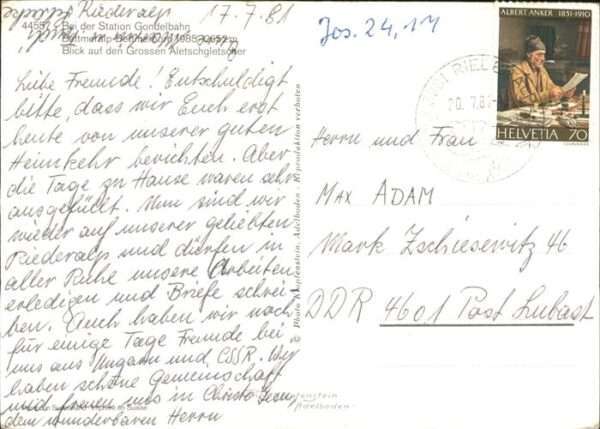 Riederalp 17.7.81
Bei der Station Gondelbahn
Blick auf den Grossen Aletschgletscher
Liebe Freunde! Entschuldigt
bitte, dass wir Euch erst
heute von unserer guten
Heimkehr berichten. Aber
die Tage zu Hause waren sehr
ausgefüllt. Nun sind wir
wieder auf unserer geliebten
Riederalp und dürfen in
aller Ruhe unsere Arbeiten
erledigen und Briefe schrei-
ben. Auch haben wir noch
für einige Tage Freunde bei
uns aus Ungarn und CSSR. Wir
haben schöne Gemeinschaft
und freuen uns in Christo Jesu,
dem wunderbaren Herrn
Photo Klopfenstein, Adelboden - Reproduktion verboten
Jos. 24,14
ALBERT ANKER 1831-1910
HELVETIA 70
Herrn und Frau
MAX ADAM
Mark Zschiesewitz 46
DDR 4601 Post Lubast
Adelboden